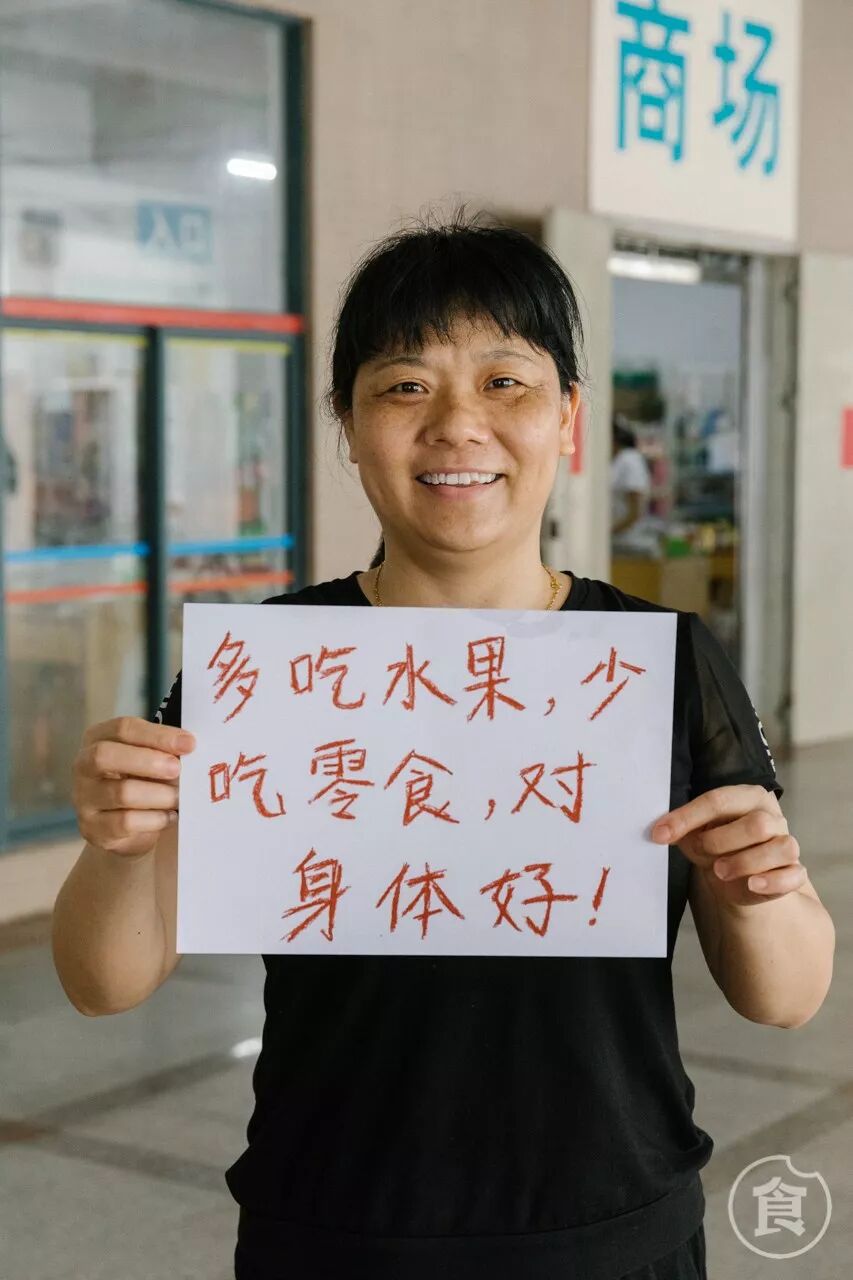 商场
入口
多吃水果,少
吃零食,对
身体好!
食